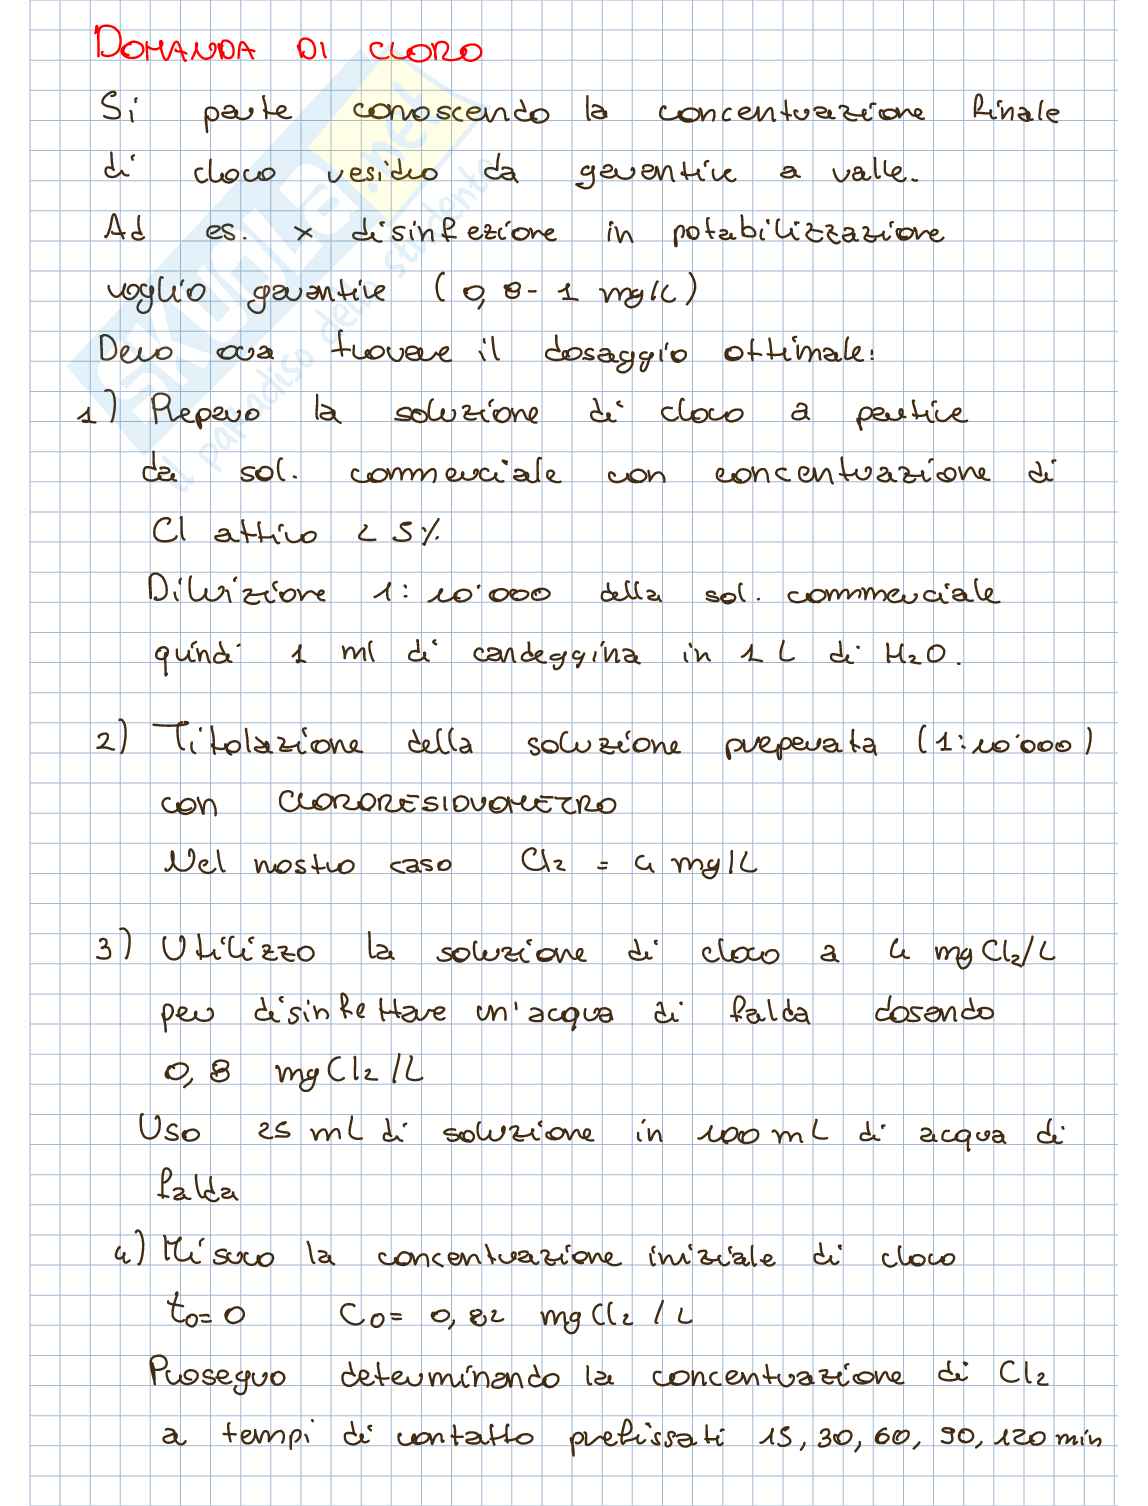 DOMANDA DI CLORO
Si parte conoscendo la concentrazione finale
di cloro residuo da garantire a valle.
Ad es. x disinfezione in potabilizzazione
voglio garantire (0,8-1 mg/L)
Devo ora trovare il dosaggio ottimale:
1) Reparo la soluzione di cloro a partire
da sol. commerciale con concentrazione di
Cl attivo < 5%
Diluizione 1:10'000 della sol. commerciale
quindi 1 ml di candeggina in 1 L di H2O.
2) Titolazione della soluzione preparata (1:10'000)
con CLORORESIDUOMETRO
Nel nostro caso Cl2 = 4 mg/L
3) Utilizzo la soluzione di cloro a 4 mgCl2/L
per disinfettare un'acqua di falda dosando
0,8 mgCl2/L
Uso 25 mL di soluzione in 100 mL di acqua di
falda
4) Misuro la concentrazione iniziale di cloro
t0=0 C0= 0,82 mgCl2/L
Proseguo determinando la concentrazione di Cl2
a tempi di contatto prefissati 15, 30, 60, 90, 120 min
SKUOLA.net
il paradiso dello studente